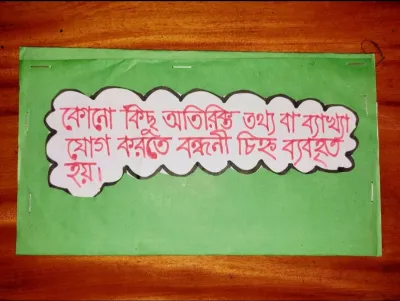 কোনো কিছু অতিরিক্ত তথ্য বা ব্যাখ্যা
যোগ করতে বন্ধনী চিহ্ন ব্যবহৃত
হয়।